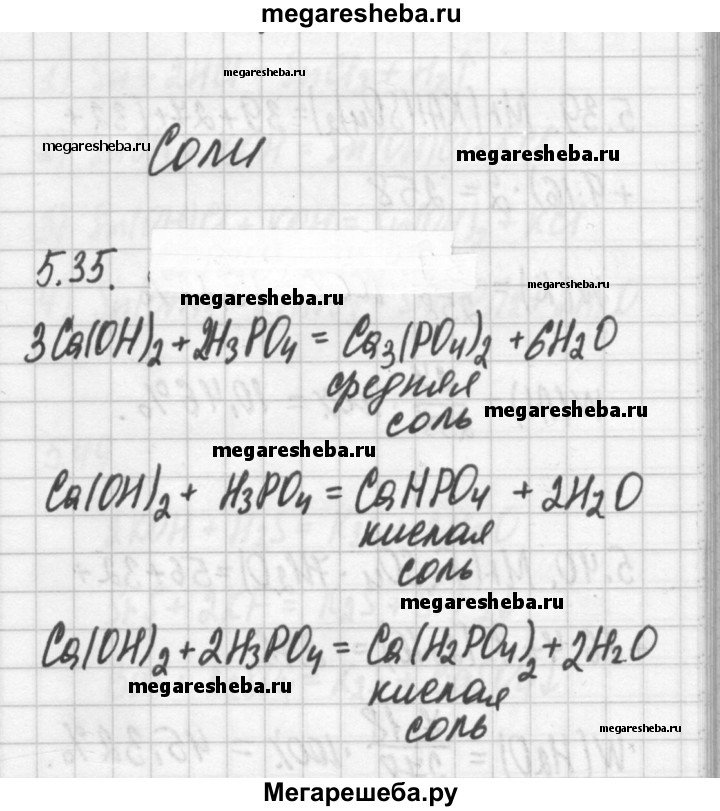 megaresheba.ru
megaresheba.ru
megaresheba.ru Соли megaresheba.ru
5.35.
megaresheba.ru
megaresheba.ru
3Ca(OH)₂ + 2H₃PO₄ = Ca₃(PO₄)₂ + 6H₂O
средняя
соль megaresheba.ru
megaresheba.ru
Ca(OH)₂ + H₃PO₄ = CaHPO₄ + 2H₂O
кислая
соль
megaresheba.ru
Ca(OH)₂ + 2H₃PO₄ = Ca(H₂PO₄)₂ + 2H₂O
megaresheba.ru кислая
соль megaresheba.ru
Мегарешеба.ру